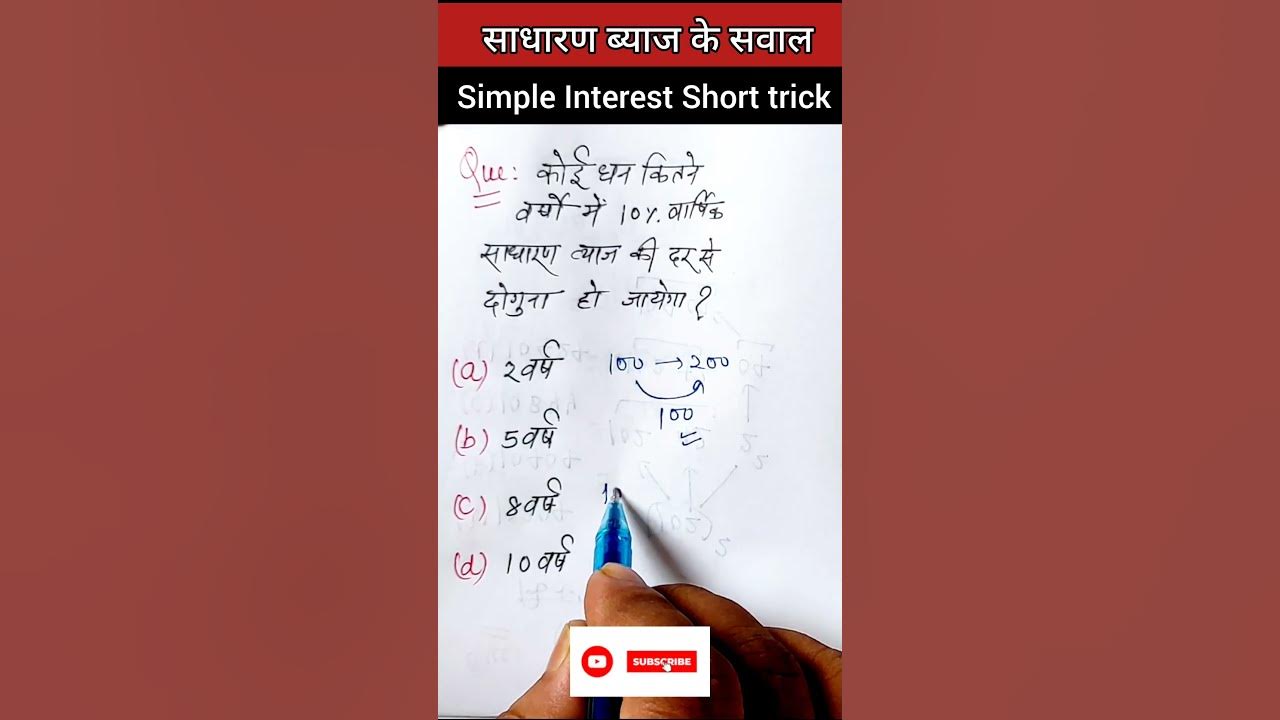 साधारण ब्याज के सवाल
Simple Interest Short trick
Que: कोई धन कितने
वर्षो में 10%. वार्षिक
साधारण ब्याज की दर से
दोगुना हो जायेगा ?
(a) 2वर्ष 100 → 200
100
(b) 5वर्ष
(c) 8वर्ष 1
(d) 10वर्ष
SUBSCRIBE